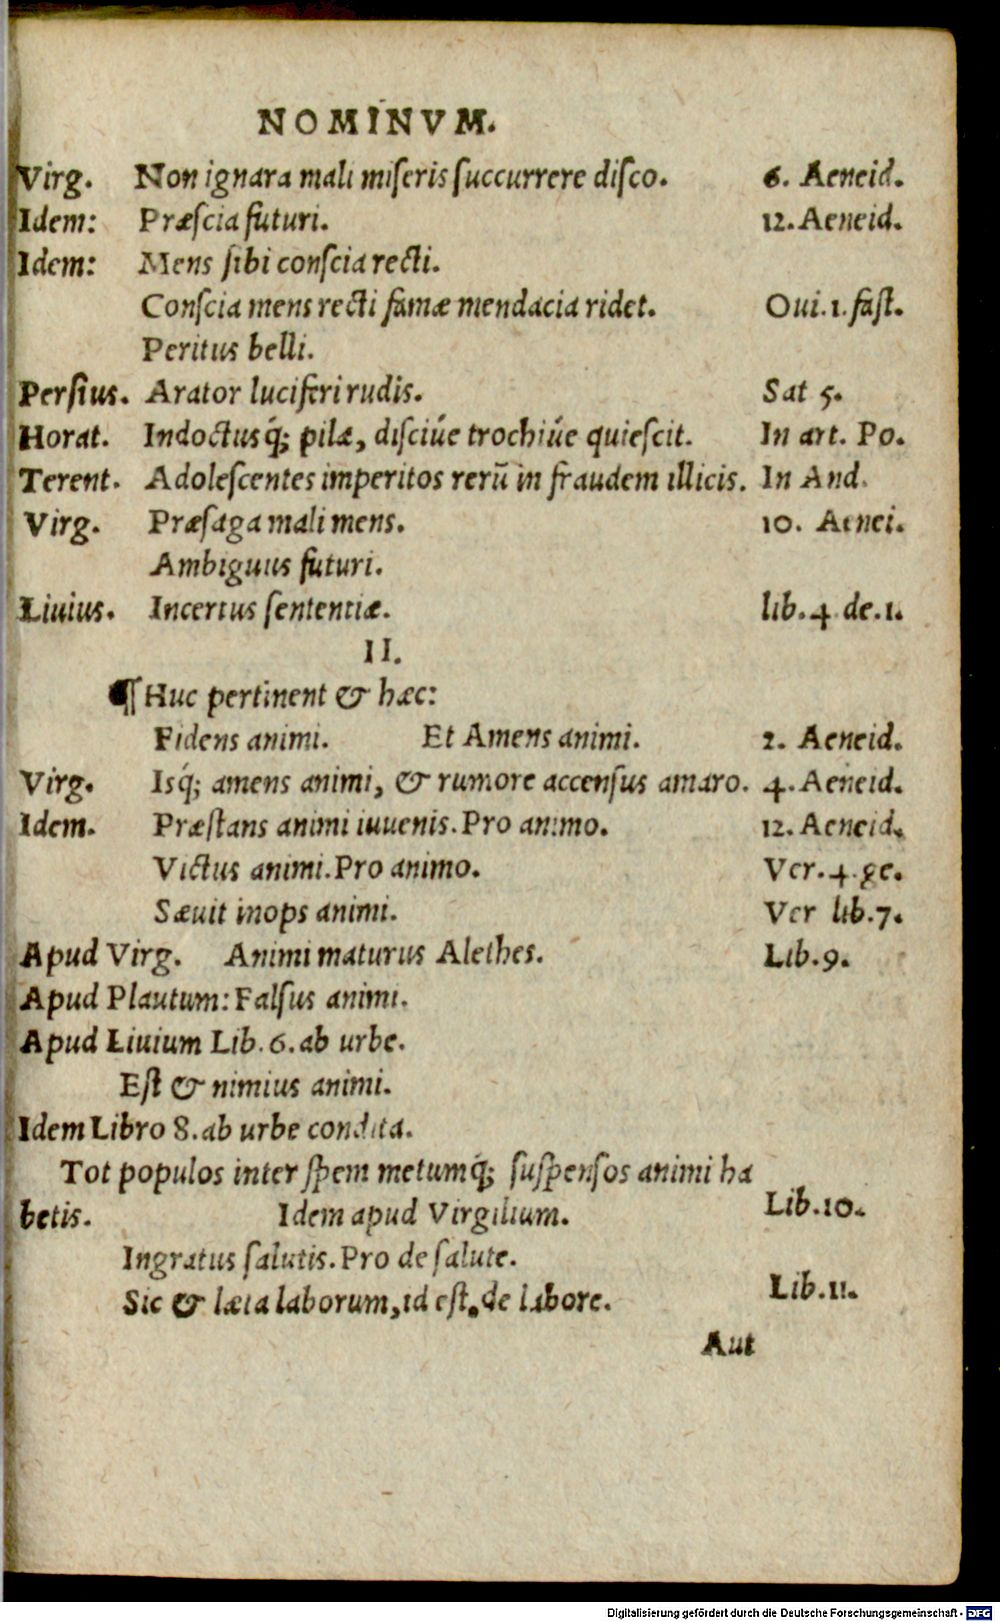 NOMINVM.
Virg. Non ignara mali miſeris ſuccurrere diſco. 6. Aeneid.
Idem: Præſcia futuri. 12. Aeneid.
Idem: Mens ſibi conſcia recti.
Conſcia mens recti famæ mendacia ridet. Oui. 1. faſt.
Peritus belli.
Perſius. Arator luciferi rudis. Sat 5.
Horat. Indoctusq́; pilæ, diſciúe trochiúe quieſcit. In art. Po.
Terent. Adoleſcentes imperitos rerũ in fraudem illicis. In And.
Virg. Præſaga mali mens. 10. Aenei.
Ambiguus futuri.
Liuius. Incertus ſententiæ. lib. 4 de. 1.
II.
¶ Huc pertinent & hæc:
Fidens animi. Et Amens animi. 2. Aeneid.
Virg. Isq́; amens animi, & rumore accenſus amaro. 4. Aeneid.
Idem. Præſtans animi iuuenis. Pro animo. 12. Aeneid.
Victus animi. Pro animo. Ver. 4. ge.
Sæuit inops animi. Ver lib. 7.
Apud Virg. Animi maturus Alethes. Lib. 9.
Apud Plautum: Falſus animi.
Apud Liuium Lib. 6. ab urbe.
Eſt & nimius animi.
Idem Libro 8. ab urbe condita.
Tot populos inter ſpem metumq́; ſuſpenſos animi ha
betis. Idem apud Virgilium. Lib. 10.
Ingratus ſalutis. Pro de ſalute.
Sic & læta laborum, id eſt, de labore. Lib. 11.
Aut
Digitalisierung gefördert durch die Deutsche Forschungsgemeinschaft - DFG